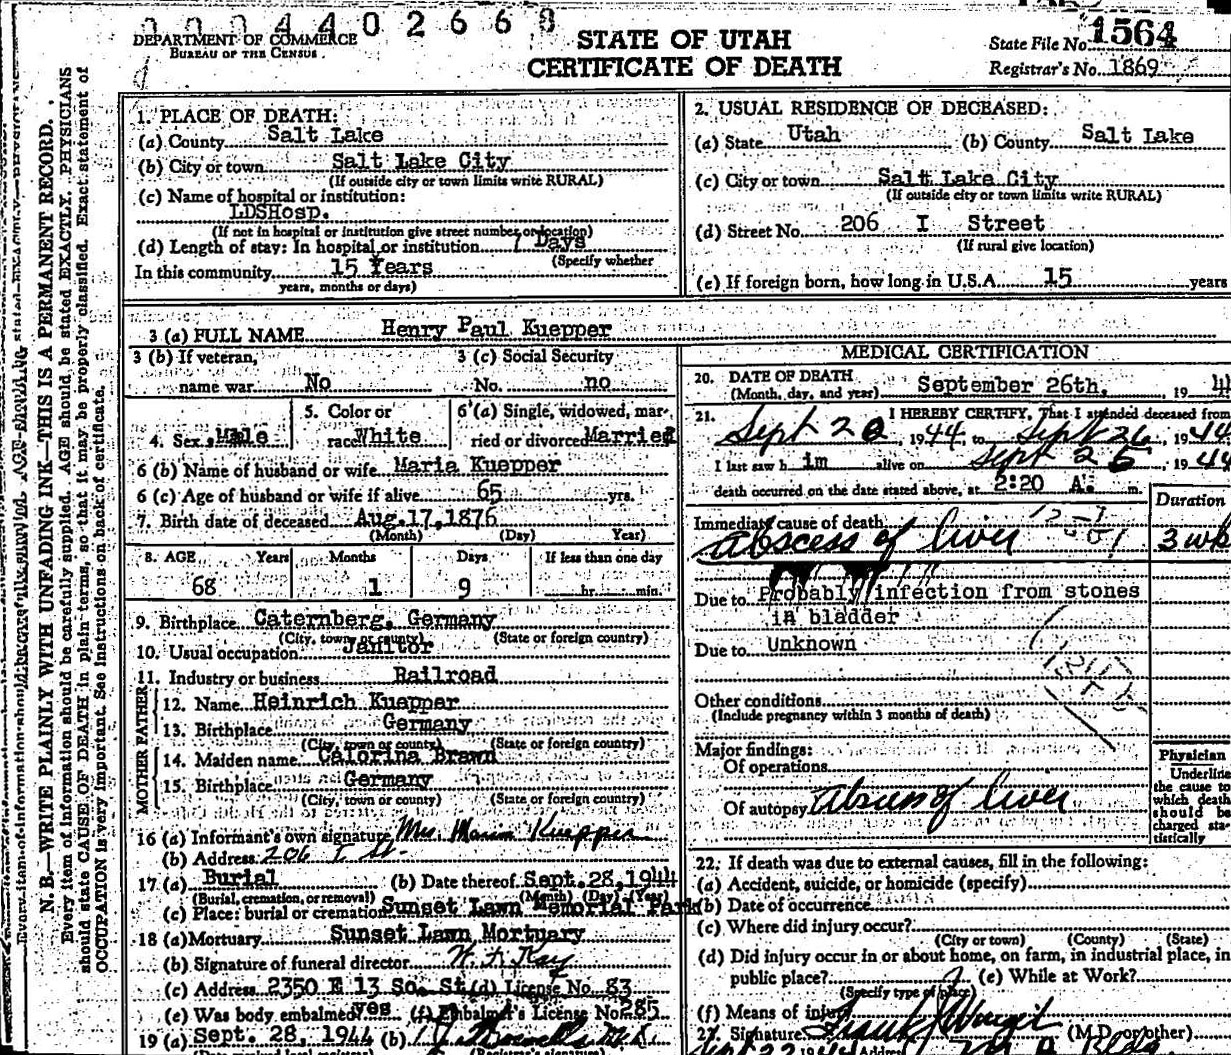 0004402668
DEPARTMENT OF COMMERCE
BUREAU OF THE CENSUS
STATE OF UTAH
CERTIFICATE OF DEATH
State File No. 1564
Registrar's No. 1869
N. B.—WRITE PLAINLY WITH UNFADING INK—THIS IS A PERMANENT RECORD.
Every item of information should be carefully supplied. AGE should be stated EXACTLY. PHYSICIANS
should state CAUSE OF DEATH in plain terms, so that it may be properly classified. Exact statement of
OCCUPATION is very important. See instructions on back of certificate.
1. PLACE OF DEATH:
(a) County Salt Lake
(b) City or town Salt Lake City
(If outside city or town limits write RURAL)
(c) Name of hospital or institution:
LDSHosp.
(If not in hospital or institution give street number or location)
(d) Length of stay: In hospital or institution Days
(Specify whether
In this community 15 Years
years, months or days)
2. USUAL RESIDENCE OF DECEASED:
(a) State Utah (b) County Salt Lake
(c) City or town Salt Lake City
(If outside city or town limits write RURAL)
(d) Street No. 206 I Street
(If rural give location)
(e) If foreign born, how long in U.S.A 15 years
3 (a) FULL NAME Henry Paul Kuepper
3 (b) If veteran, name war No
3 (c) Social Security No. no
4. Sex Male
5. Color or race White
6 (a) Single, widowed, married or divorced Married
6 (b) Name of husband or wife Maria Kuepper
6 (c) Age of husband or wife if alive 65 yrs.
7. Birth date of deceased Aug. 17, 1876
(Month) (Day) Year)
8. AGE Years Months Days If less than one day
68 1 9 hr. min.
9. Birthplace Caternberg, Germany
(City, town or county) (State or foreign country)
10. Usual occupation Janitor
11. Industry or business Railroad
FATHER
12. Name Heinrich Kuepper
13. Birthplace Germany
(City, town or county) (State or foreign country)
MOTHER
14. Maiden name Catorina Brawn
15. Birthplace Germany
(City, town or county) (State or foreign country)
16 (a) Informant's own signature Mrs. Maria Kuepper
(b) Address 206 I St.
17 (a) Burial (b) Date thereof Sept. 28, 1944
(Burial, cremation, or removal) (Month) (Day) (Year)
(c) Place: burial or cremation Sunset Lawn Memorial Park
18 (a) Mortuary Sunset Lawn Mortuary
(b) Signature of funeral director
(c) Address 2350 E 13 So. St (d) License No. 83
(e) Was body embalmed yes (f) Embalmer's License No 285
19 (a) Sept. 28, 1944 (b)
MEDICAL CERTIFICATION
20. DATE OF DEATH September 26th, 19
(Month, day, and year)
21. I HEREBY CERTIFY, That I attended deceased from
Sept 20, 1944, to Sept 26, 1944
I last saw him alive on Sept 26, 1944
death occurred on the date stated above, at 2:20 A. m.
Duration
Immediate cause of death
Abscess of liver 3 wk
Due to Probably infection from stones
in bladder
Due to Unknown
Other conditions
(Include pregnancy within 3 months of death)
Major findings:
Of operations
Of autopsy Abscess of liver
Physician
Underline
the cause to
which death
should be
charged sta-
tistically
22. If death was due to external causes, fill in the following:
(a) Accident, suicide, or homicide (specify)
(b) Date of occurrence
(c) Where did injury occur?
(City or town) (County) (State)
(d) Did injury occur in or about home, on farm, in industrial place, in
public place? (e) While at Work?
(Specify type of place)
(f) Means of injury
Signature (M.D. or other)